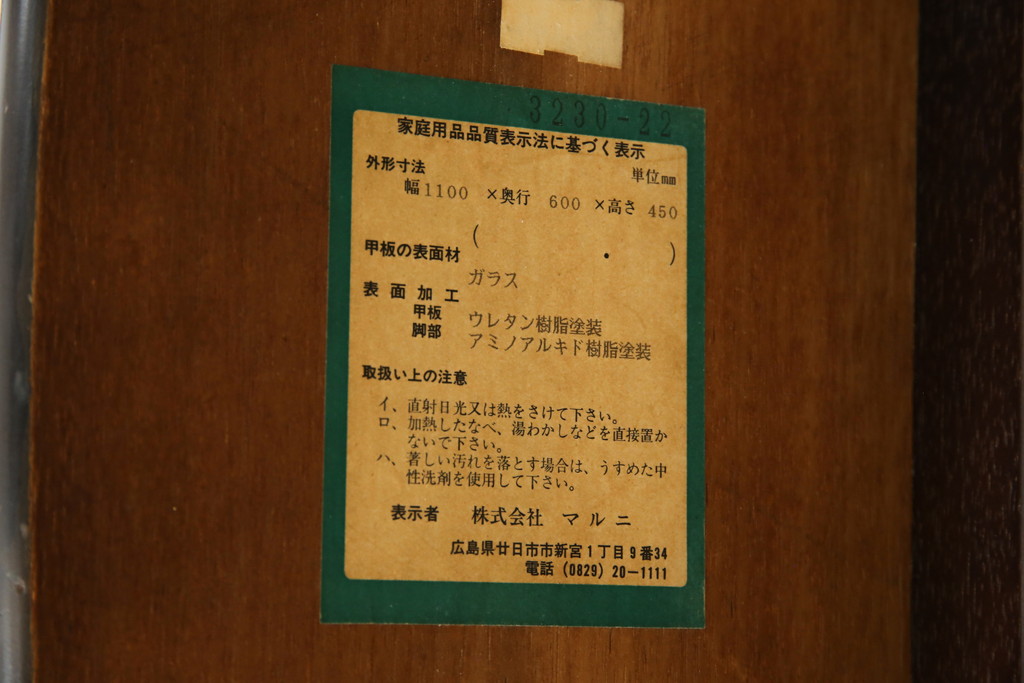 3230-22
家庭用品品質表示法に基づく表示
外形寸法 単位mm
幅1100 ×奥行 600 ×高さ 450
( ・ )
甲板の表面材
ガラス
表面加工
甲板 ウレタン樹脂塗装
脚部 アミノアルキド樹脂塗装
取扱い上の注意
イ、直射日光又は熱をさけて下さい。
ロ、加熱したなべ、湯わかしなどを直接置か
ないで下さい。
ハ、著しい汚れを落とす場合は、うすめた中
性洗剤を使用して下さい。
表示者 株式会社 マルニ
広島県廿日市市新宮1丁目9番34
電話 (0829) 20-1111